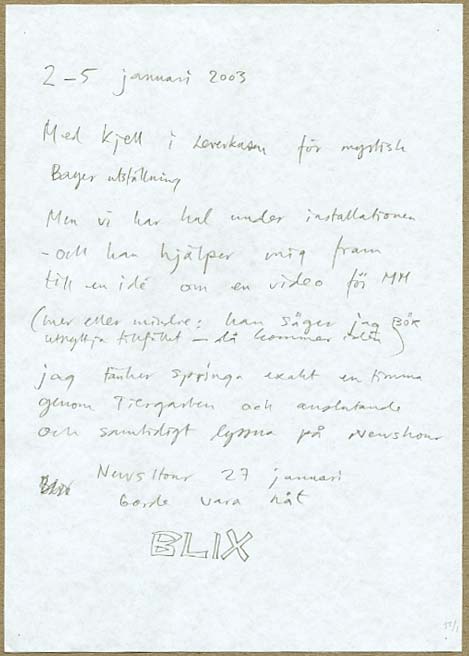 2–5 januari 2003
Med Kjell i Leverkusen för mystisk
Bayer utställning
Men vi har kul under installationen
– och han hjälper mig fram
till en idé om en video för MM
(mer eller mindre: han säger jag BÖR
utnyttja tillfället – då kommer idén)
jag tänker springa exakt en timma
genom Tiergarten och anslutande
och samtidigt lyssna på Newshour
Blix NewsHour 27 januari
borde vara nåt
BLIX